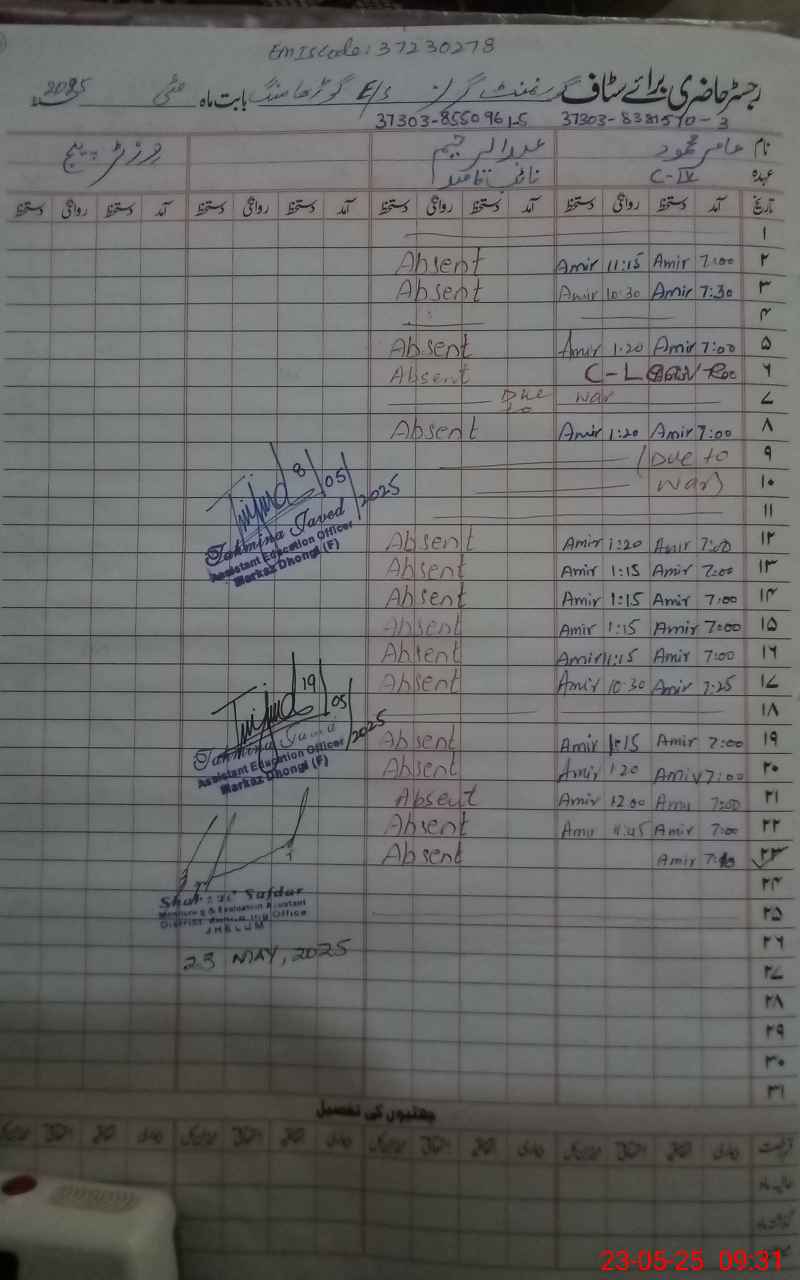 EmIScode: 37230278
رجسٹر حاضری برائے سٹاف گورنمنٹ گرلز E/S بابت ماہ مئی 2025
37303-8550961-5 37303-8381570-3
نام عامر محمود عبدالرحیم وزٹر پیج
عہدہ C-IV نائب قاصد
تاریخ آمد دستخط روانگی دستخط آمد دستخط روانگی دستخط آمد دستخط روانگی دستخط آمد دستخط روانگی دستخط
۱
۲ 7:00 Amir 11:15 Amir Absent
۳ 7:30 Amir 10:30 Amir Absent
۴
۵ 7:00 Amir 1:20 Amir Absent
۶ C-L Absent
۷ Due to war
۸ 7:00 Amir 1:20 Amir Absent
۹ (Due to
۱۰ war)
۱۱
۱۲ 7:00 Amir 1:20 Amir Absent
۱۳ 7:00 Amir 1:15 Amir Absent
۱۴ 7:00 Amir 1:15 Amir Absent
۱۵ 7:00 Amir 1:15 Amir Absent
۱۶ 7:00 Amir 11:15 Amir Absent
۱۷ 7:25 Amir 10:30 Amir Absent
۱۸
۱۹ 7:00 Amir 1:15 Amir Absent
۲۰ 7:00 Amir 1:20 Amir Absent
۲۱ 7:00 Amir 12:00 Amir Absent
۲۲ 7:00 Amir 11:45 Amir Absent
۲۳ Amir Absent
۲۴
۲۵
۲۶
۲۷
۲۸
۲۹
۳۰
۳۱
8/05/2025
Tahmina Javed
Assistant Education Officer
Markaz Dhongi (F)
19/05/2025
Tahmina Javed
Assistant Education Officer
Markaz Dhongi (F)
Safdar
Monitoring & Evaluation Assistant
District Office
JHELUM
23 MAY, 2025
چھٹیوں کی تفصیل
23-05-25 09:31